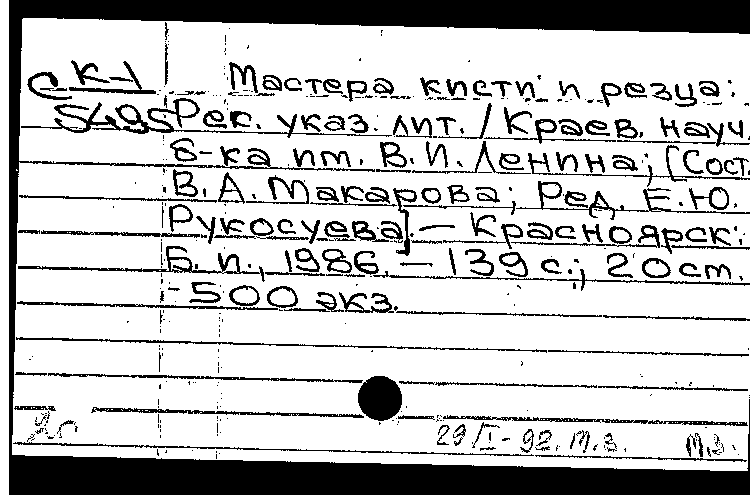 С К-1 Мастера кисти и резца:
5495 Рек. указ. лит. / Краев. науч.
б-ка им. В.И. Ленина; [Сост.
В.А. Макарова; Ред. Е.Ю.
Рукосуева]. — Красноярск:
Б. и., 1986. — 139 с.; 20 см.
- 500 экз.
29/I-92. М.З. М.З.